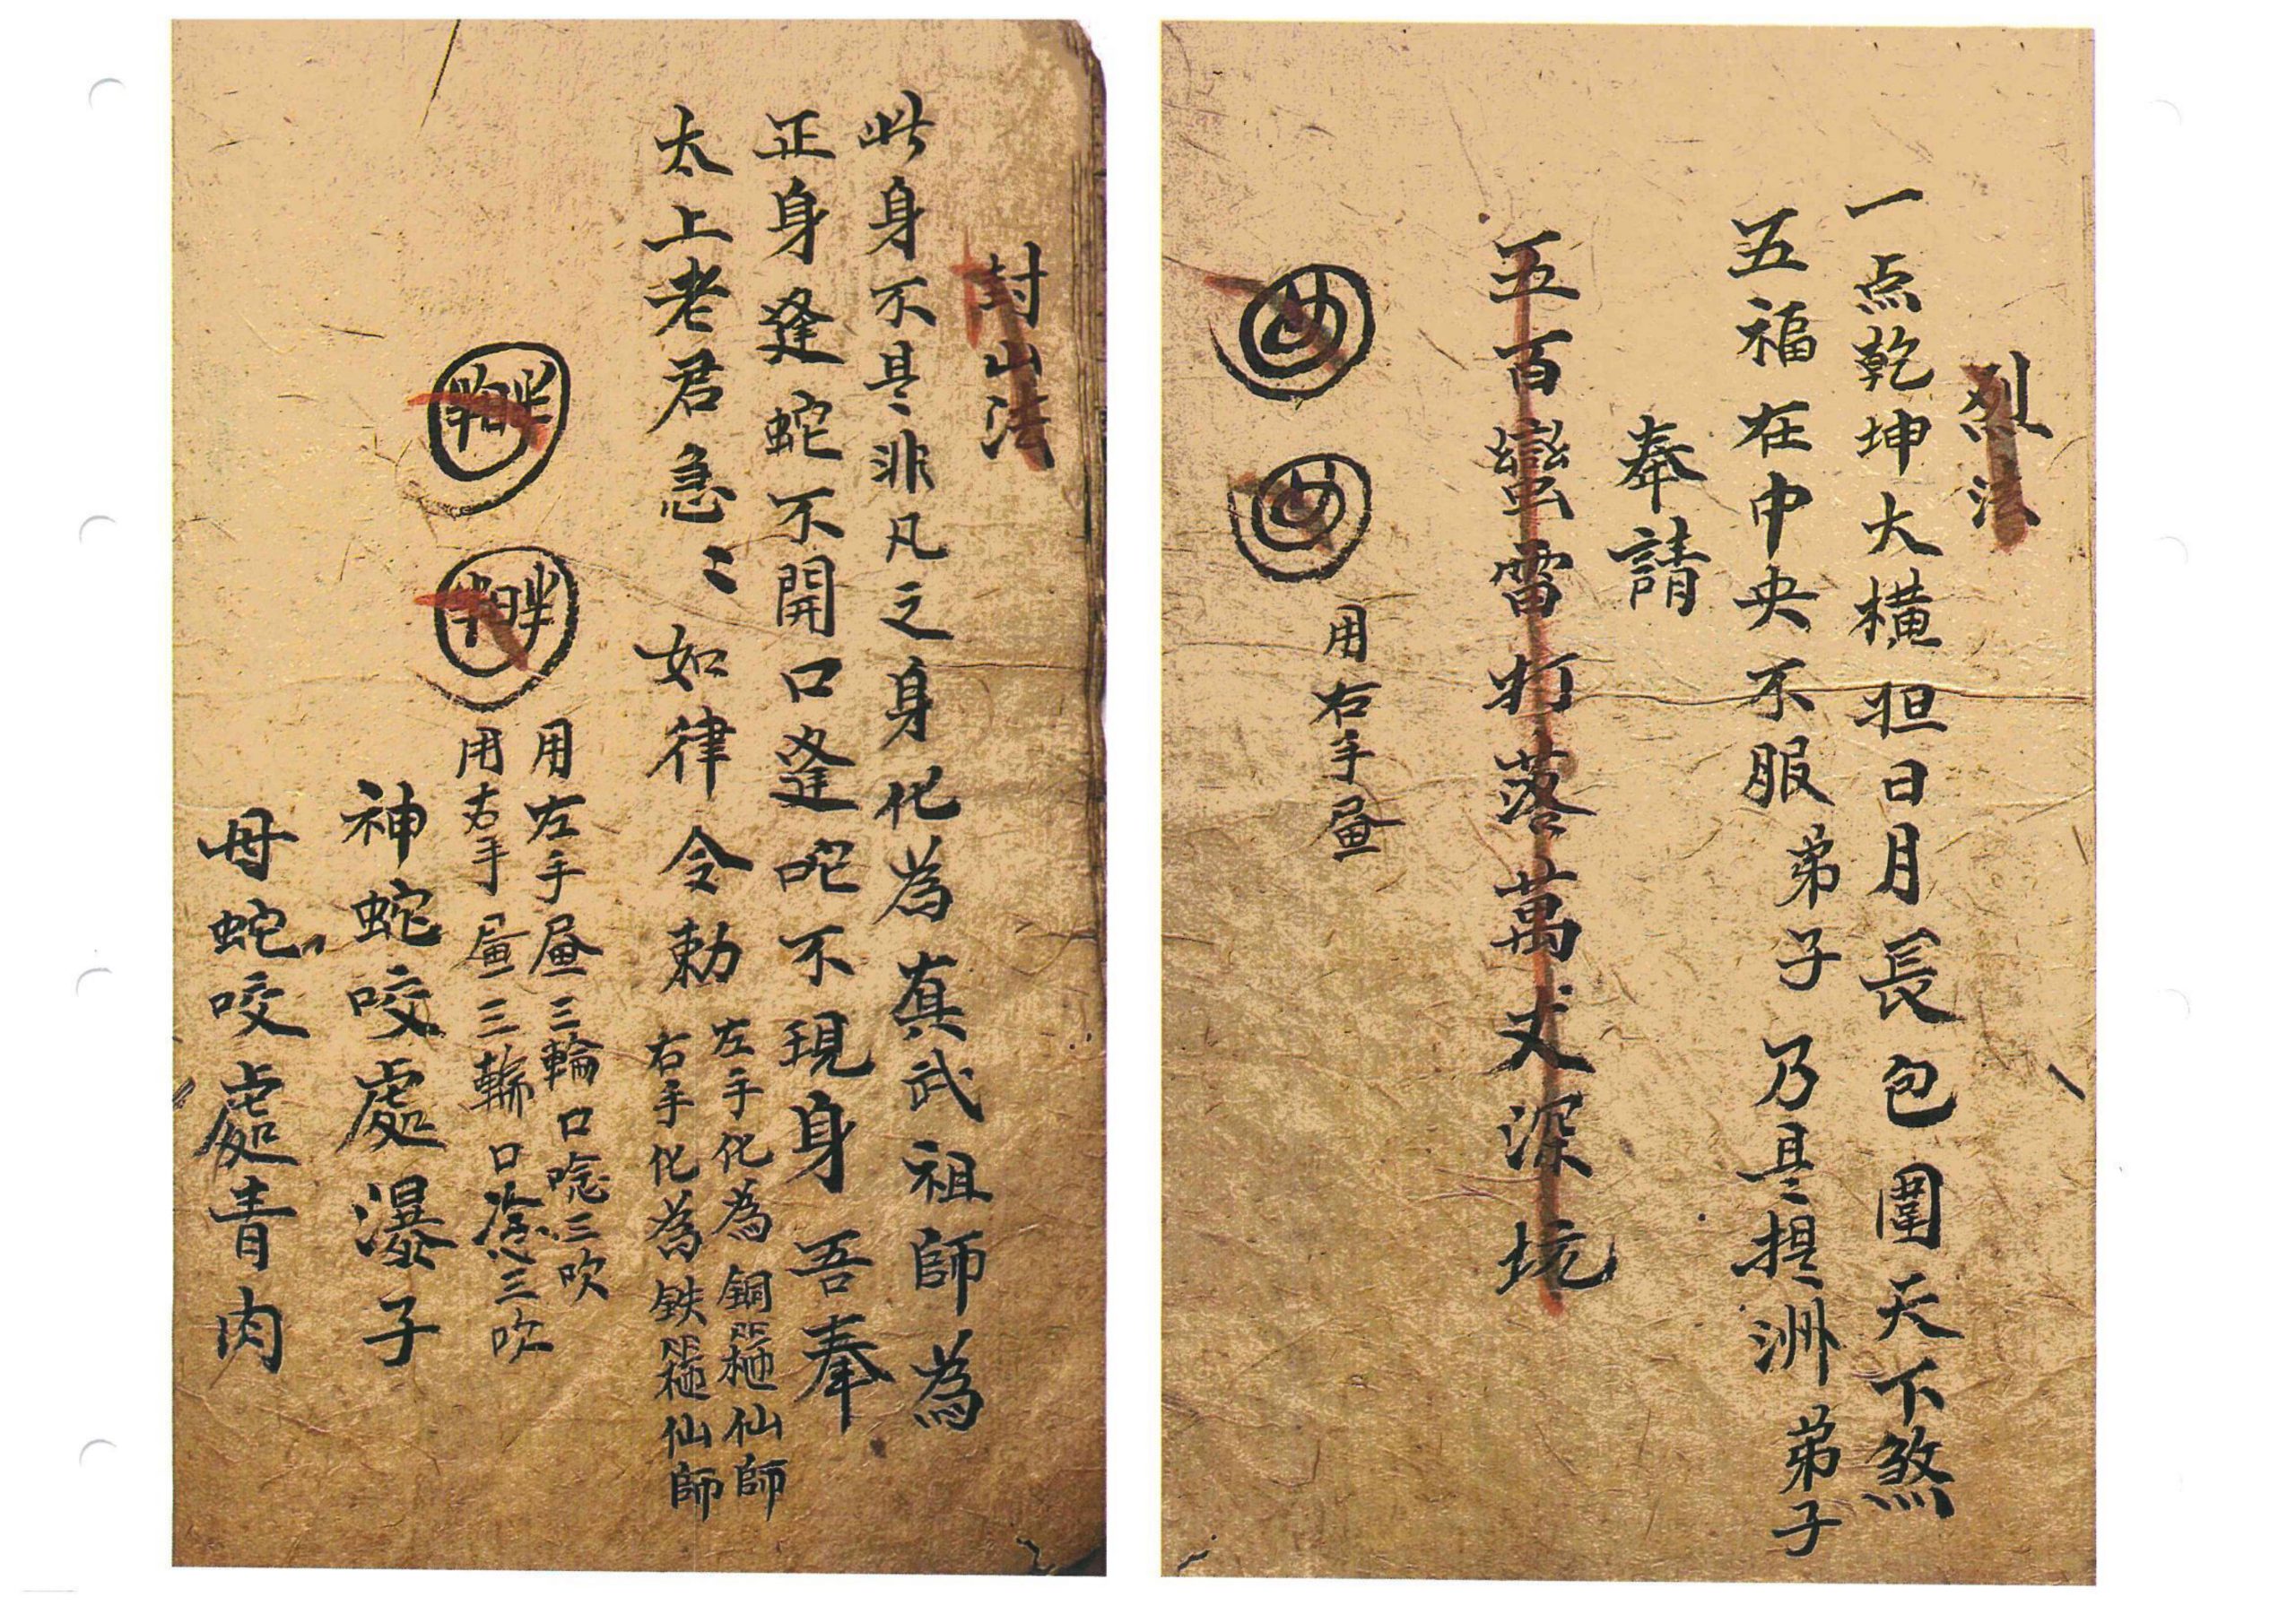 烈法
一点乾坤大橫担日月長包圍天下煞
五福在中央不服弟子乃是提洲弟子
奉請
五百蠻雷打落萬丈深坑
用右手
封山法
此身不是非凡之身化為真武祖師為
正身逢蛇不開口逢蛇不現身吾奉
太上老君急〻如律令勅
左手化為銅 仙師
右手化為鉄 仙師
用左手 三輪口唸三吹
用右手 三輪口唸三吹
神蛇咬處瀑子
母蛇咬處青肉